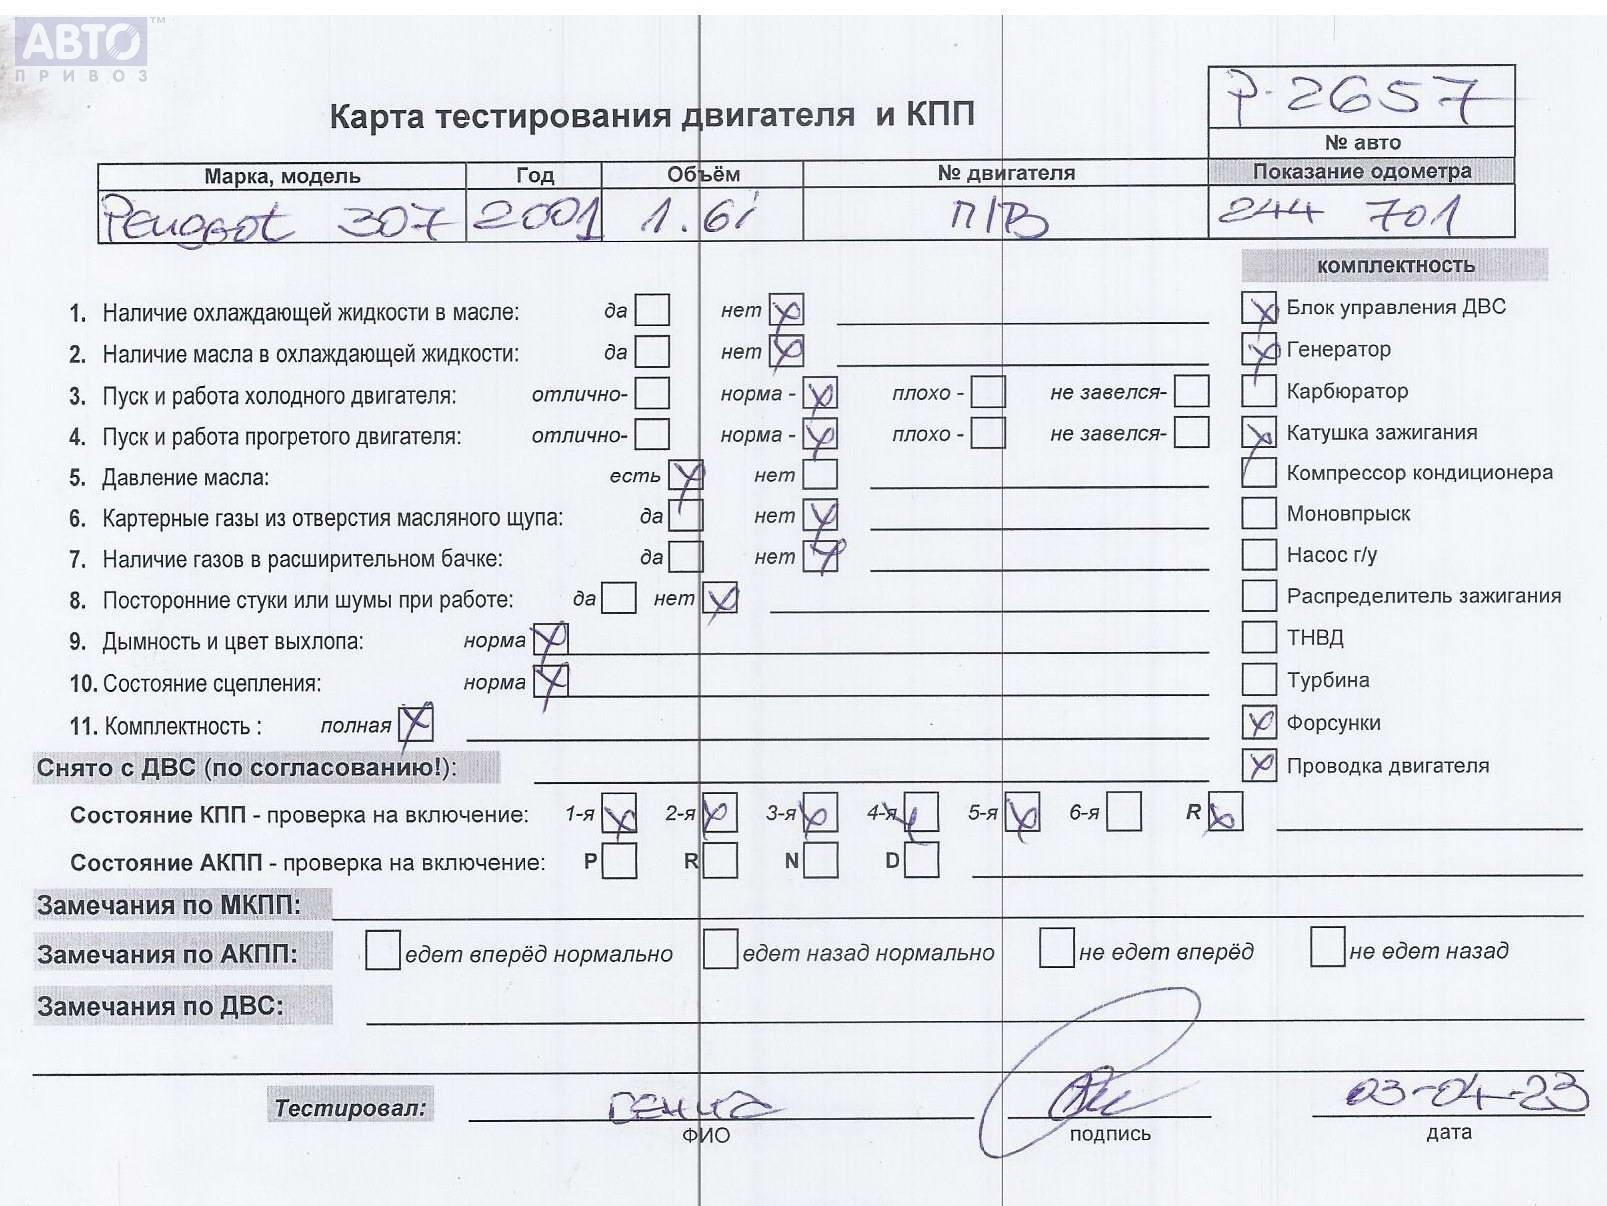 АВТО ™
ПРИВОЗ
Р-2657
Карта тестирования двигателя и КПП
№ авто
Марка, модель Год Объём № двигателя Показание одометра
Peugeot 307 2001 1.6i П/В 244 701
комплектность
1. Наличие охлаждающей жидкости в масле: да нет x
x Блок управления ДВС
2. Наличие масла в охлаждающей жидкости: да нет x
x Генератор
3. Пуск и работа холодного двигателя: отлично- норма - x плохо - не завелся-
Карбюратор
4. Пуск и работа прогретого двигателя: отлично- норма - x плохо - не завелся-
x Катушка зажигания
5. Давление масла: есть x нет
Компрессор кондиционера
6. Картерные газы из отверстия масляного щупа: да нет x
Моновпрыск
7. Наличие газов в расширительном бачке: да нет x
Насос г/у
8. Посторонние стуки или шумы при работе: да нет x
Распределитель зажигания
9. Дымность и цвет выхлопа: норма x
ТНВД
10. Состояние сцепления: норма x
Турбина
11. Комплектность : полная x
x Форсунки
Снято с ДВС (по согласованию!):
x Проводка двигателя
Состояние КПП - проверка на включение: 1-я x 2-я x 3-я x 4-я x 5-я x 6-я R x
Состояние АКПП - проверка на включение: P R N D
Замечания по МКПП:
Замечания по АКПП: едет вперёд нормально едет назад нормально не едет вперёд не едет назад
Замечания по ДВС:
Тестировал: 03-04-23
ФИО подпись дата